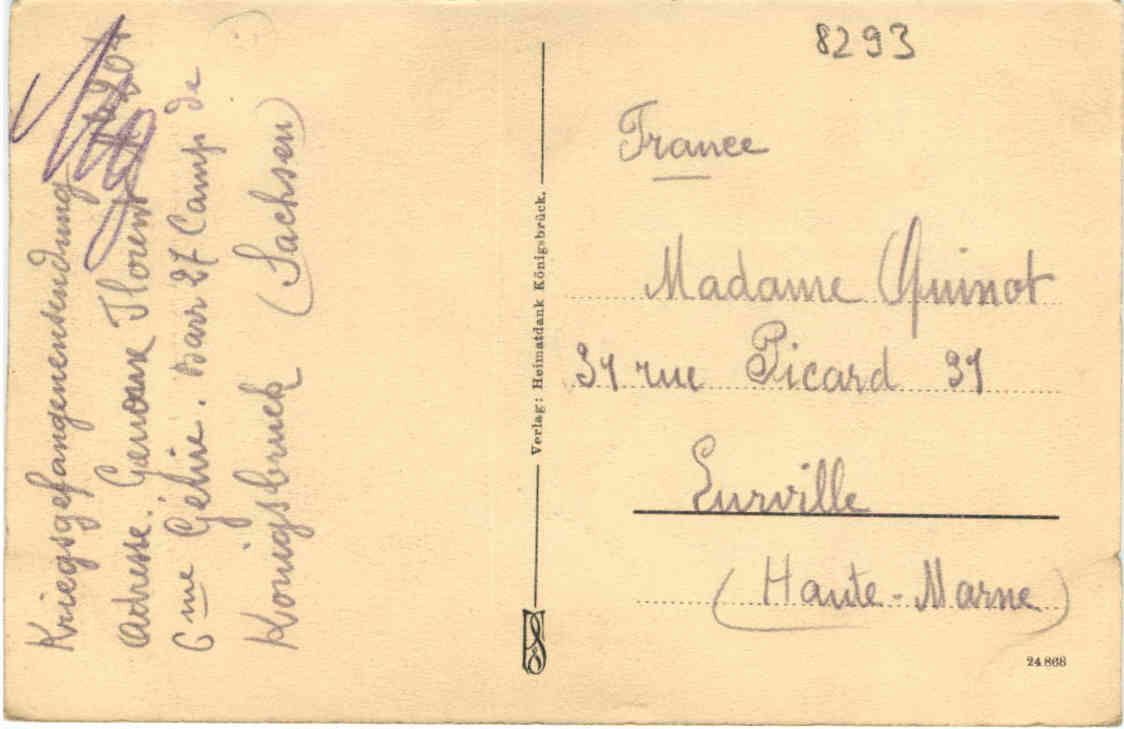 Kriegsgefangenensendung
Adresse. Florent
6me Génie. Bar 27 Camp de
Konigsbruck (Sachsen)
Verlag: Heimatdank Königsbrück.
8293
France
Madame Quinot
31 rue Picard 31
Eurville
(Haute-Marne)
24868